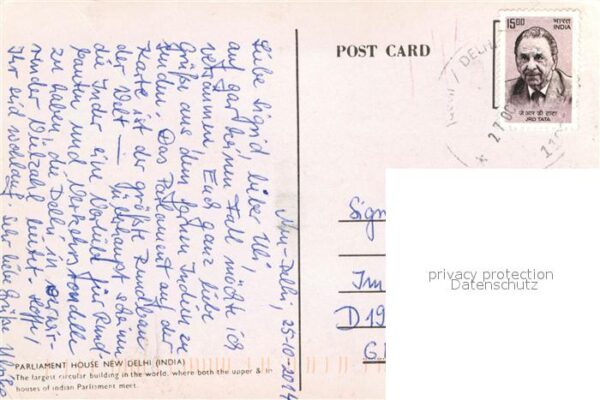 Neu-Delhi, 25-10-2014
Liebe Sigrid, lieber Uli!
auf gar keinen Fall möchte ich
versäumen Euch ganz liebe
Grüße aus dem fernen Indien zu
senden. Das Parlament auf der
Karte ist der größte Rundbau
der Welt — überhaupt scheinen
die Inder eine Vorliebe für Rund-
bauten und Verkehrsrondelle
zu haben, die Delhi in
render Vielzahl besitzt. Hoffe,
Ihr seid wohlauf. Sehr liebe Grüße
PARLIAMENT HOUSE NEW DELHI (INDIA)
The largest circular building in the world, where both the upper &
houses of indian Parliament meet.
POST CARD
15.00 भारत
INDIA
जे आर डी टाटा
JRD TATA
DELHI
27 OC
Sign
Im
D 19
G
privacy protection
Datenschutz